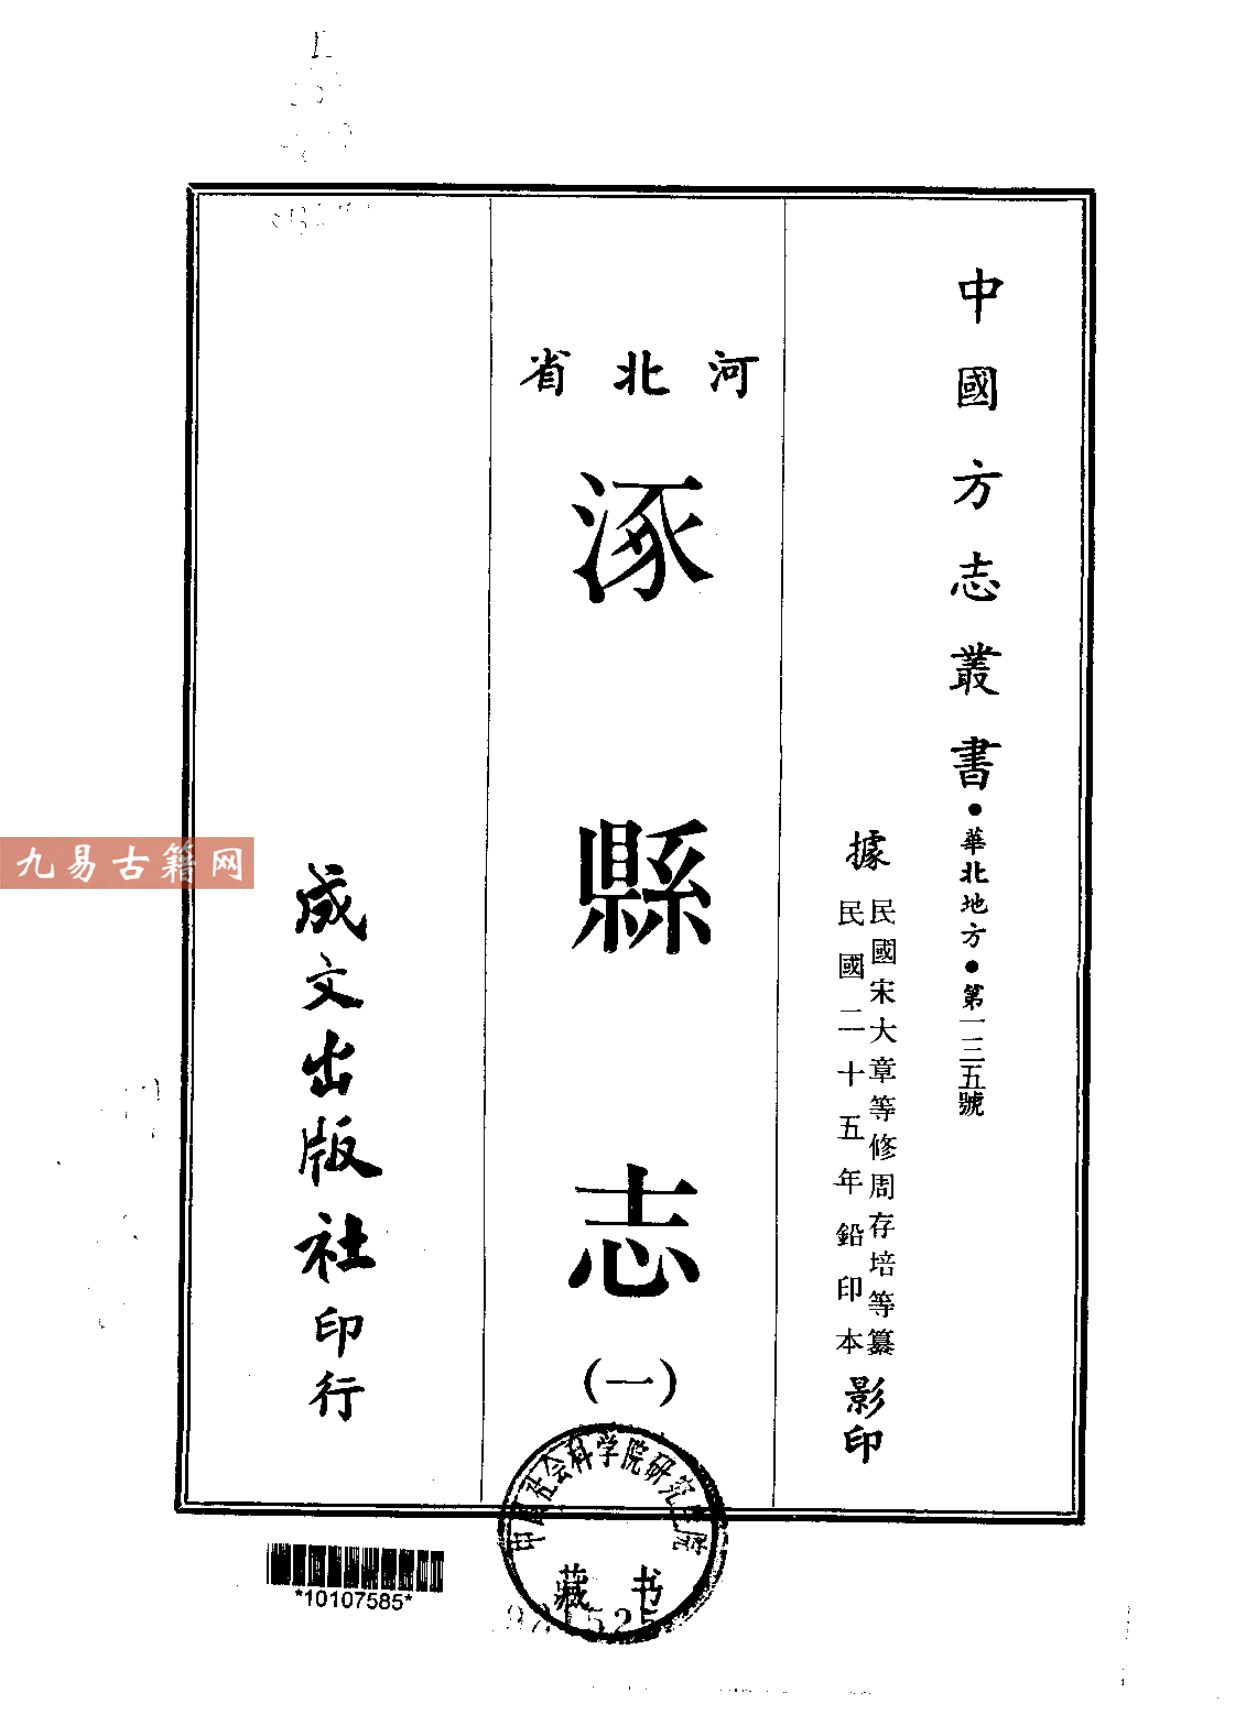 中國方志叢書•華北地方•第一三五號
據
民國宋大章等修周存培等纂
民國二十五年鉛印本
影印
河北省
涿縣志
(一)
成文出版社印行
九易古籍网
中国社会科学院研究生院
藏书
*10107585*